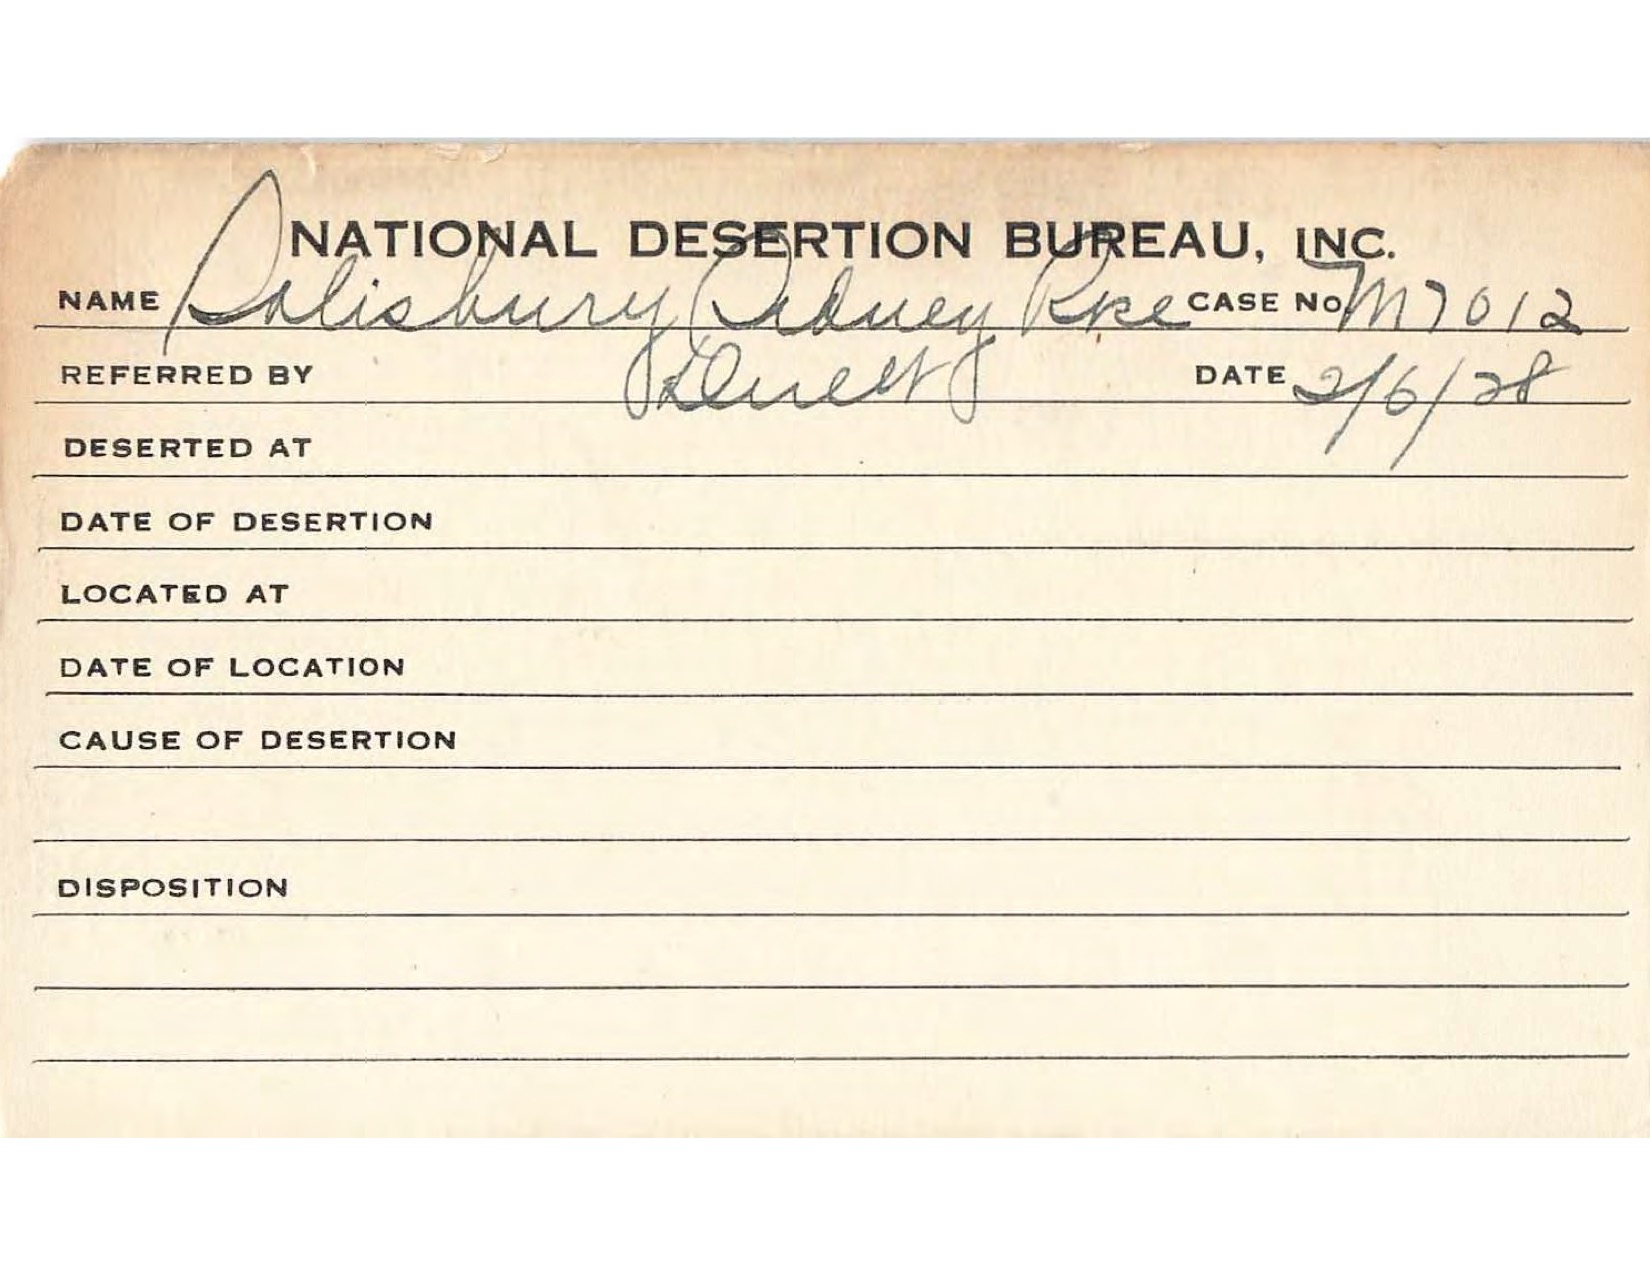 NATIONAL DESERTION BUREAU, INC.
NAME Salisbury Sidney Rose CASE No. M7012
REFERRED BY Direct DATE 2/6/28
DESERTED AT
DATE OF DESERTION
LOCATED AT
DATE OF LOCATION
CAUSE OF DESERTION
DISPOSITION